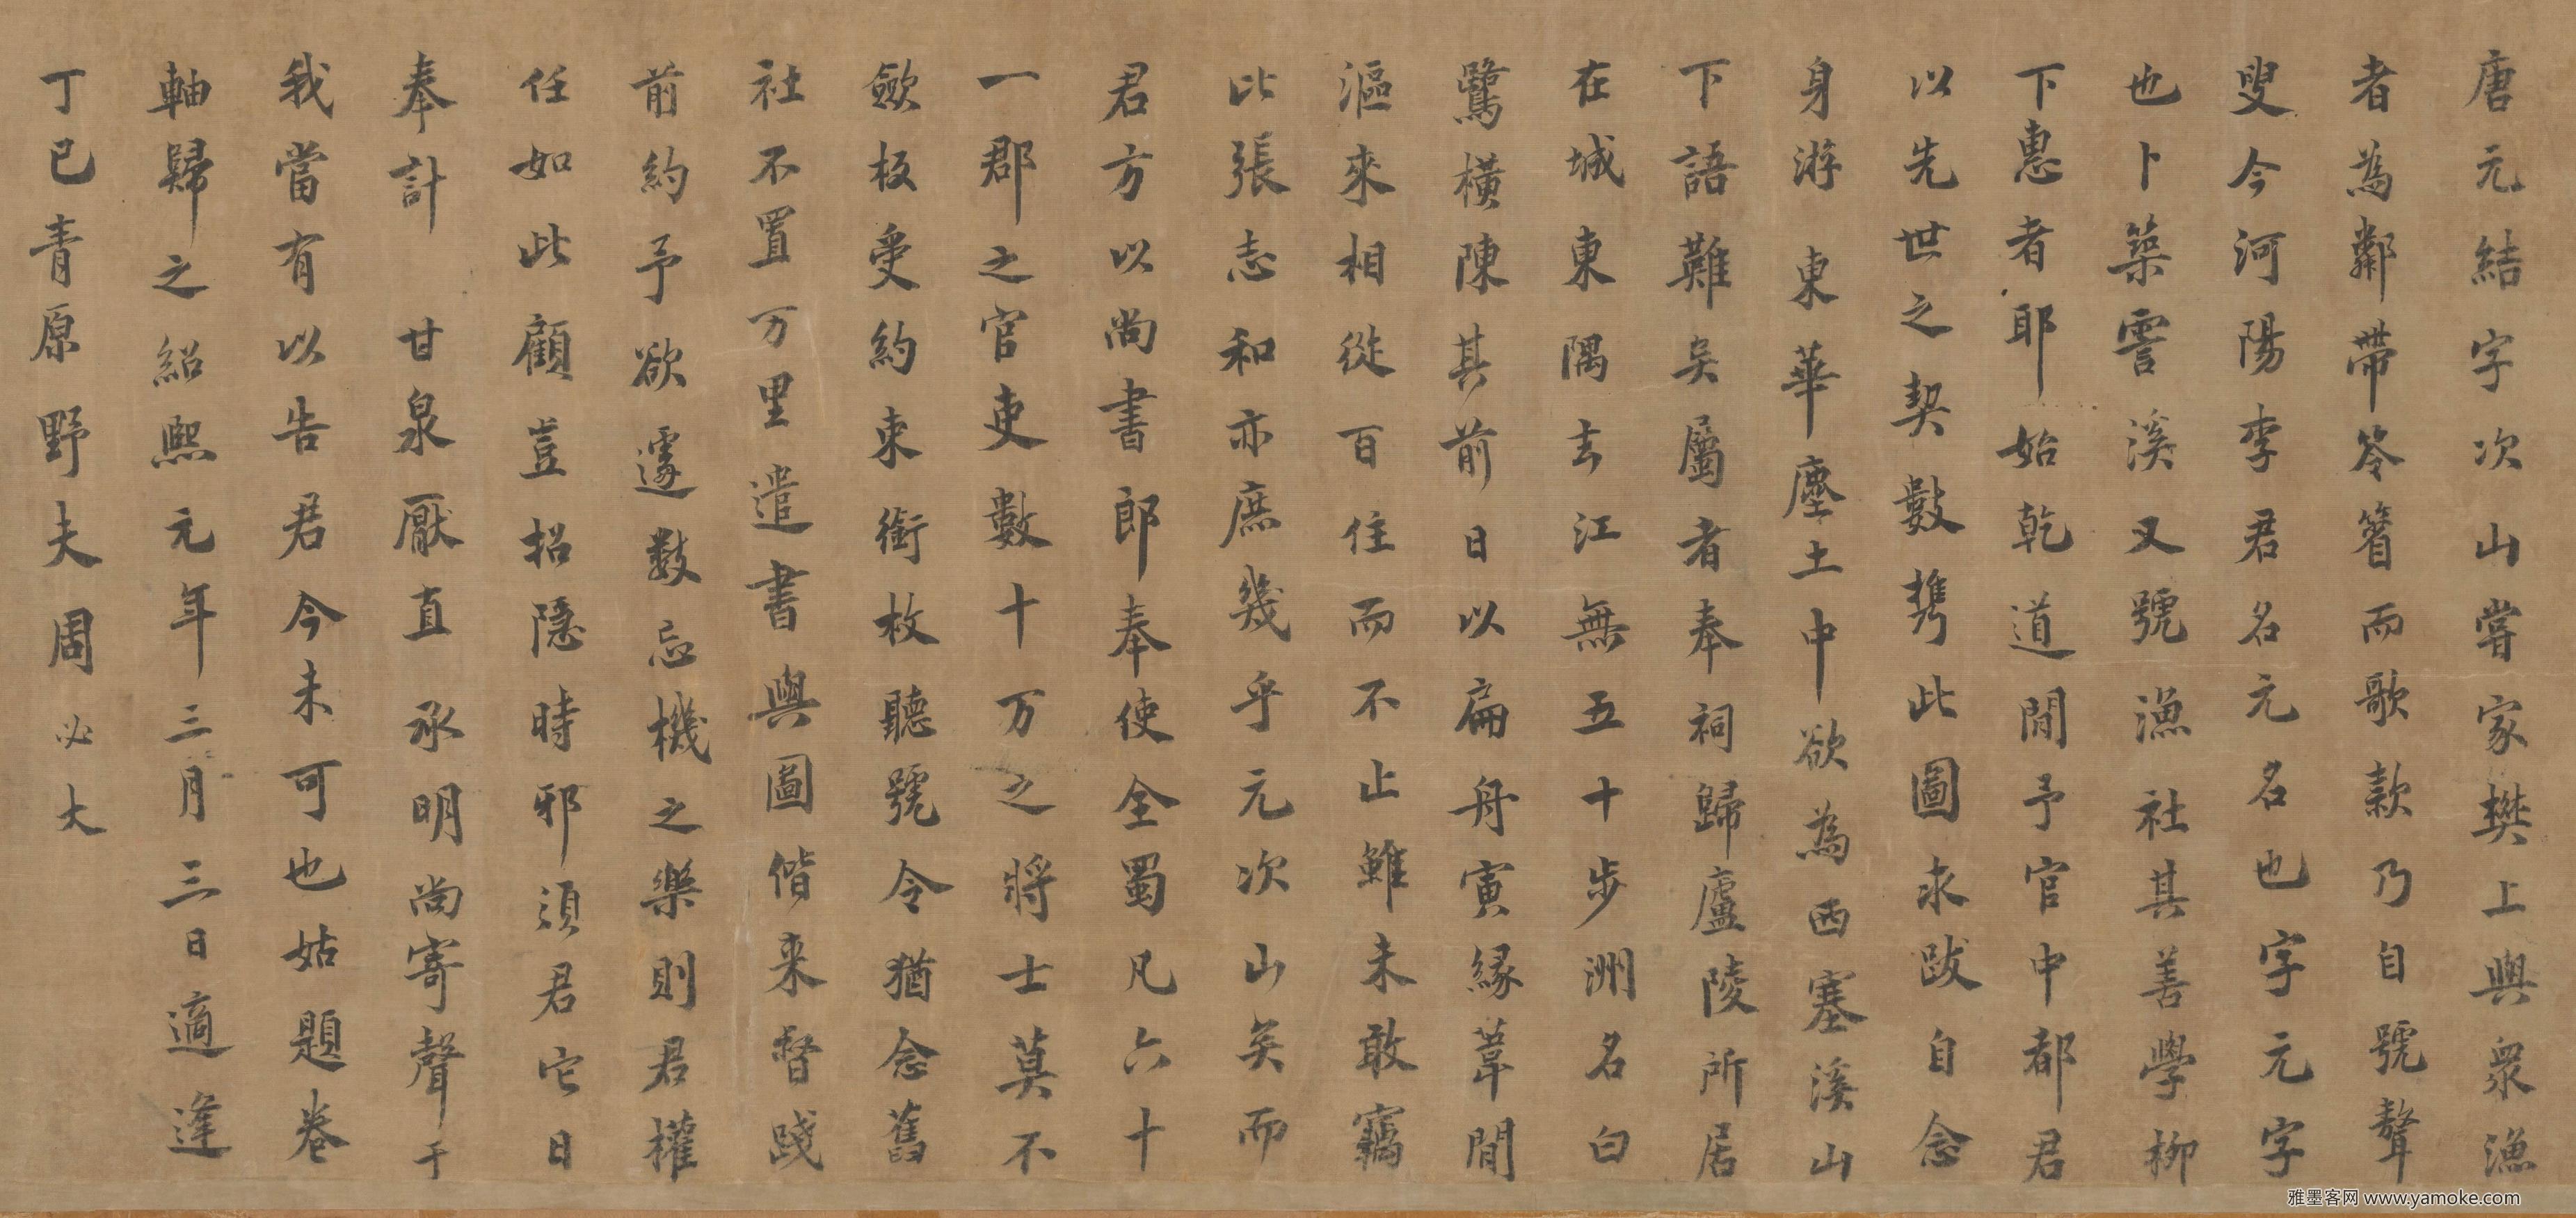 唐元結字次山嘗家樊上與衆漁
者為鄰帶笭箵而歌欵乃自號聱
叟今河陽李君名元名也字元字
也卜築霅溪又號漁社其善學柳
下惠者耶始乾道間予官中都君
以先世之契數携此圖求跋自念
身游東華塵土中欲為西塞溪山
下語難矣屬者奉祠歸廬陵所居
在城東隅去江無五十步洲名白
鷺橫陳其前日以扁舟寅緣葦間
漚來相從百住而不止雖未敢竊
比張志和亦庶幾乎元次山矣而
君方以尚書郎奉使全蜀凡六十
一郡之官吏數十万之將士莫不
斂板受約束銜枚聽號令猶念舊
社不置万里遣書與圖偕来督踐
前約予欲遽數忘機之樂則君權
任如此顧豈招隱時邪須君它日
奉計甘泉厭直承明尚寄聲于
我當有以告君今未可也姑題卷
軸歸之紹熙元年三月三日適逢
丁巳青原野夫周必大
雅墨客网 www.yamoke.com